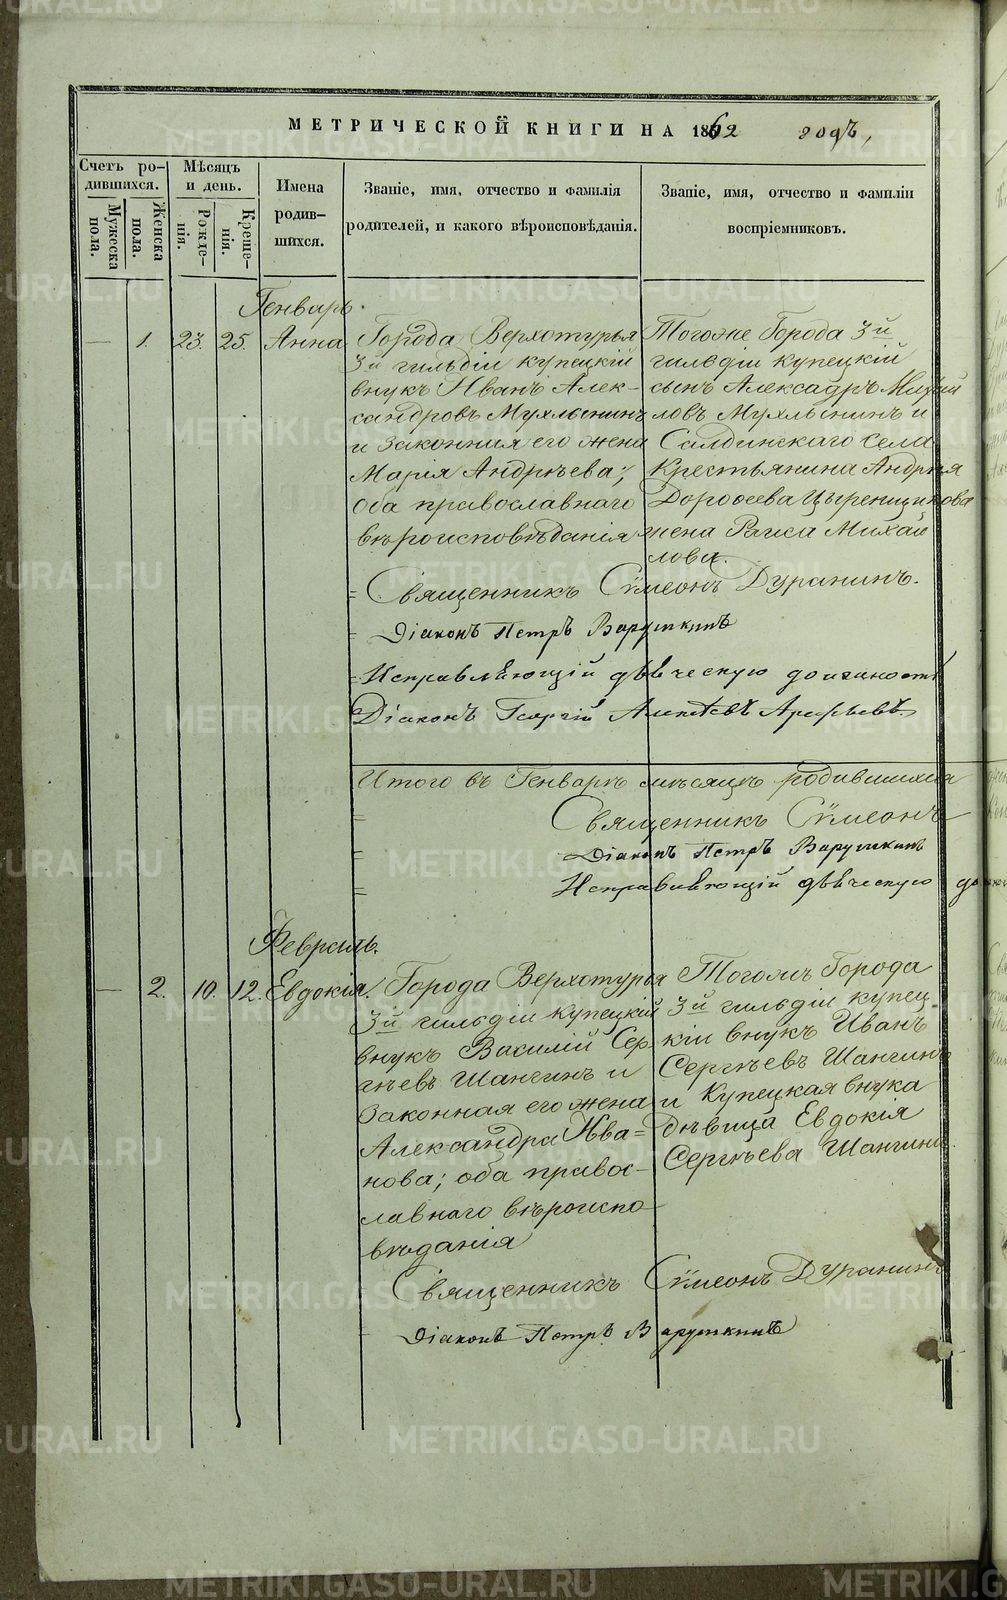 МЕТРИЧЕСКОЙ КНИГИ НА 1862 годъ,
Счетъ ро-
дившихся.
Мужеска
пола.
Женска
пола.
Мѣсяцъ
и день.
Рожде-
нія.
Креще-
нія.
Имена
родив-
шихся.
Званіе, имя, отчество и фамилія
родителей, и какого вѣроисповѣданія.
Званіе, имя, отчество и фамиліи
воспріемниковъ.
Генварь.
1. 23. 25. Анна
Города Верхотурья
3й гильдіи купецкій
внукъ Иванъ Алек-
сандровъ Мухлынинъ
и законная его жена
Марія Андрѣева;
оба православнаго
вѣроисповѣданія
Тогоже Города 3й
гильдіи купецкій
сынъ Александръ
ловъ Мухлынинъ и
Салдинскаго села
Крестьянина Андрея
Дорофеева Цыренщикова
жена Раиса Михай
лова.
Священникъ Сѵмеонъ Дуранинъ.
Діаконъ Петръ Варушкинъ
Исправляющій дьяческую должность
Діаконъ Георгій
Итого въ Генварѣ мѣсяцѣ родившихся
Священникъ Сѵмеонъ
Діаконъ Петръ Варушкинъ
Исправляющій дьяческую
Февраль.
2. 10. 12. Евдокія.
Города Верхотурья
3й гильдіи купецкій
внукъ Василій Сер-
гѣевъ Шангинъ и
законная его жена
Александра Ива=
нова; оба правос-
лавнаго вѣроиспо
вѣданія
Тогожъ Города
3й гильдіи купец-
кіи внукъ Иванъ
Сергѣевъ Шангинъ
и Купецкая внука
дѣвица Евдокія
Сергѣева Шангина.
Священникъ Сѵмеонъ Дуранинъ
Діаконъ Петръ Варушкинъ
METRIKI.GASO-URAL.RU